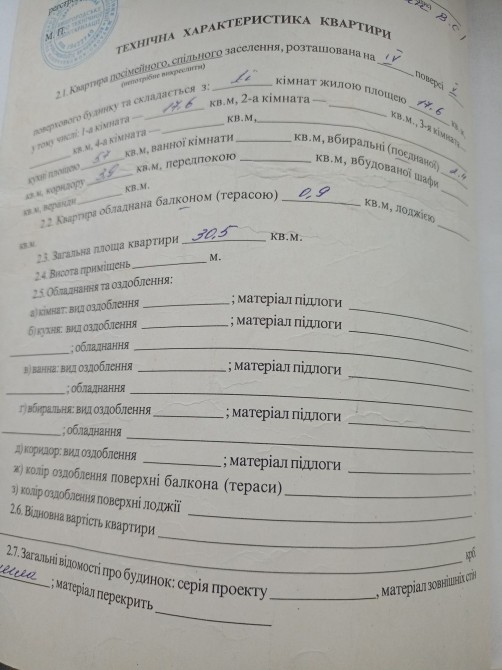 М. П.
ТЕХНІЧНА ХАРАКТЕРИСТИКА КВАРТИРИ
2.1. Квартира посімейного, спільного заселення, розташована на IV поверсі V
(непотрібне викреслити)
поверхового будинку та складається з: кімнат жилою площею 17.6 кв. м,
у тому числі: 1-а кімната — 17.6 кв.м, 2-а кімната — кв.м., 3-я кімната —
кв.м, 4-а кімната — кв.м,
кухні площею 5,7 кв.м, ванної кімнати кв.м, вбиральні (поєднаної)
кв.м, коридору 3,8 кв.м, передпокою кв.м, вбудованої шафи
кв.м, веранди кв.м.
2.2. Квартира обладнана балконом (терасою) 0,9 кв.м, лоджією
кв.м.
2.3. Загальна площа квартири 30,5 кв.м.
2.4. Висота приміщень м.
2.5. Обладнання та оздоблення:
а) кімнат: вид оздоблення ; матеріал підлоги
б) кухня: вид оздоблення ; матеріал підлоги
; обладнання
в) ванна: вид оздоблення ; матеріал підлоги
; обладнання
г) вбиральня: вид оздоблення ; матеріал підлоги
; обладнання
д) коридор: вид оздоблення ; матеріал підлоги
ж) колір оздоблення поверхні балкона (тераси)
з) колір оздоблення поверхні лоджії
2.6. Відновна вартість квартири
крб.
2.7. Загальні відомості про будинок: серія проекту , матеріал зовнішніх стін
; матеріал перекрить